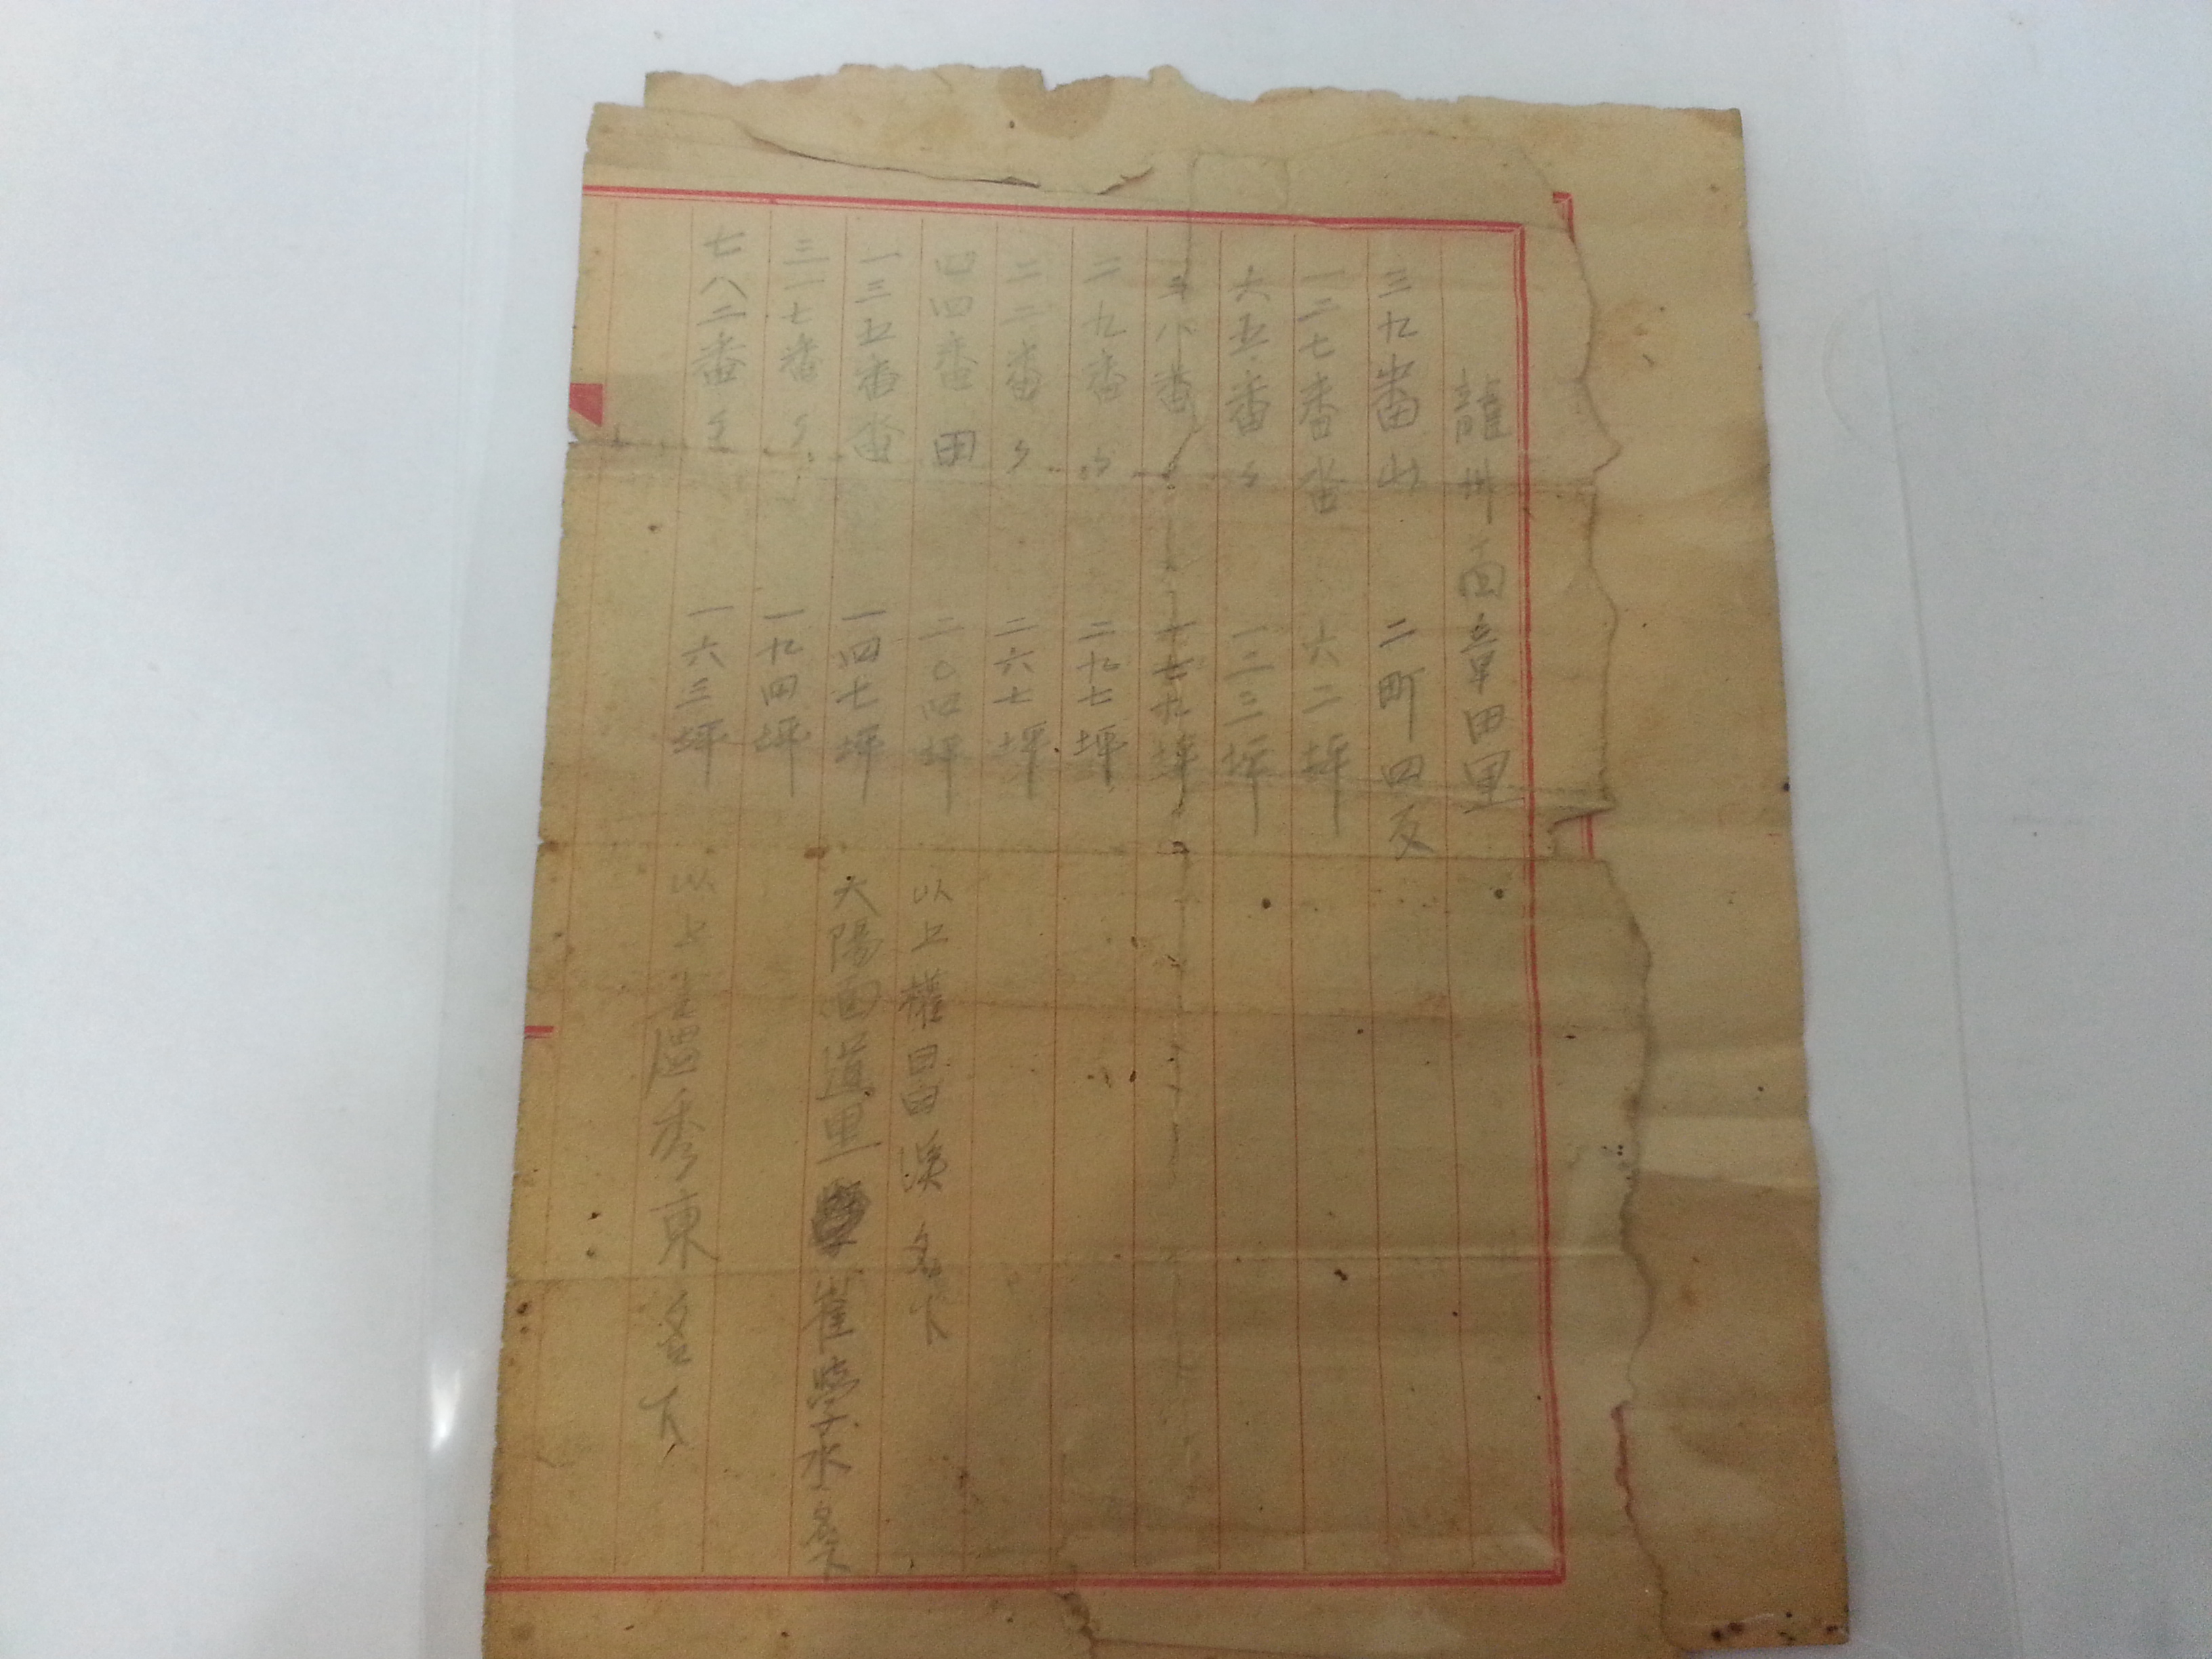 龍州面章田里
三九番山 二町四反
一二七番畓 六二坪
六五番〃 一二三坪
三八番 一七九坪
二九番〃 二九七坪
二二番〃 二六七坪
四四番田 二〇四坪 以上權昌漢名下
一三五番畓 一四七坪 大陽面道里 崔學永名下
三一七番〃 一九四坪
七八二番〃 一六三坪 以上 秀東名下